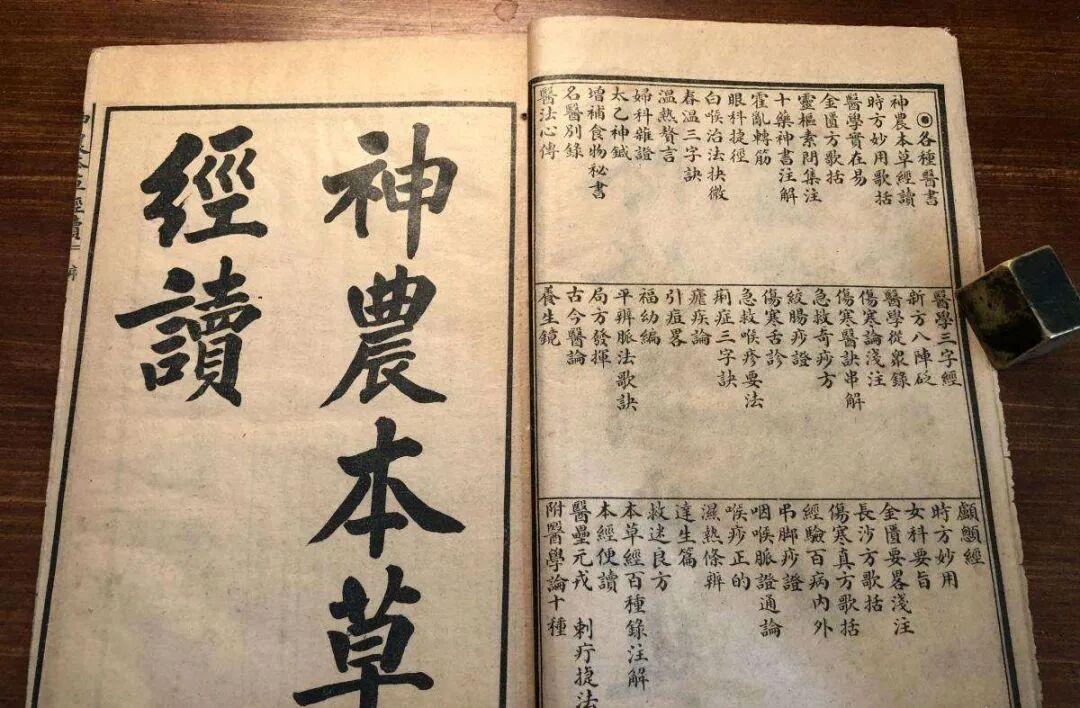 ◉各種醫書
神農本草經讀
時方妙用歌括
醫學實在易
金匱方歌括
靈樞素問集注
十藥神書注解
霍亂轉筋
眼科捷徑
白喉治法抉微
春温三字訣
温熱贅言
婦科雜證
太乙神鍼
增補食物秘書
名醫別錄
醫法心傳
醫學三字經
新方八陣砭
醫學從衆錄
傷寒論淺注
傷寒醫訣串解
急救奇痧方
絞腸痧證
傷寒舌診
急救喉疹要法
痢症三字訣
瘧疾論
引痘畧
福幼編
平辨脈法歌訣
局方發揮
古今醫論
養生鏡
顱顖經
時方妙用
女科要旨
金匱要畧淺注
長沙方歌括
傷寒真方歌括
經驗百病內外
弔脚痧證
咽喉脈證通論
喉痧正的
濕熱條辨
達生篇
救迷良方
本草經百種錄注解
本經便讀
醫壘元戎 刺疔捷法
附醫學論十種
神農本草
經讀